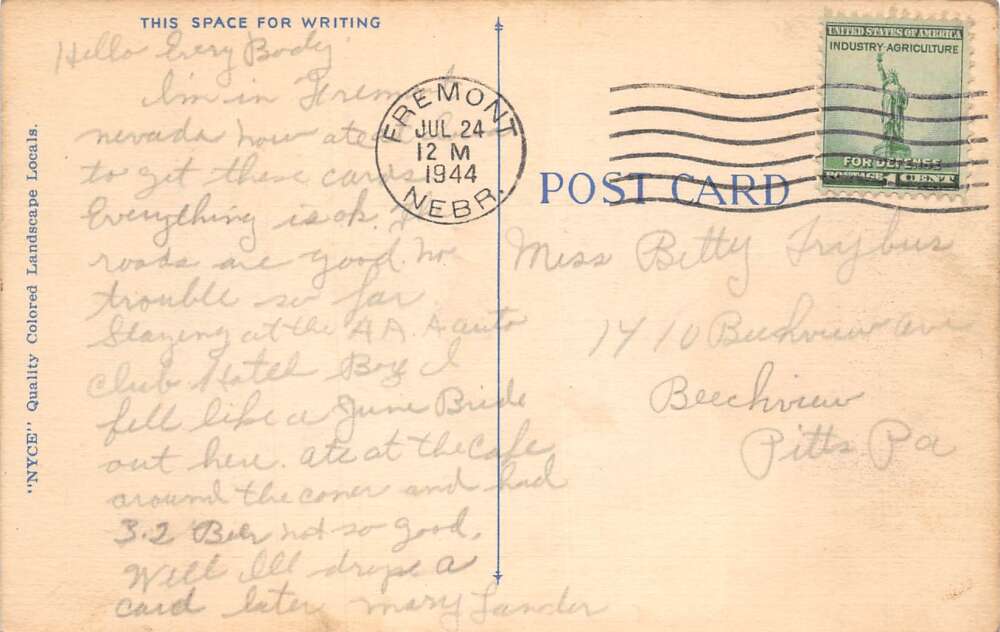 THIS SPACE FOR WRITING
Hello Every Body
I'm in Fremont
nevada now ate
to get these cards
Everything is ok.
roads are good. No
trouble so far
Staying at the 4 A. A auto
Club Hotel Boy I
fell like a June Bride
out here. ate at the Cafe
around the coner and had
3.2 Beer not so good.
Well Ill drope a
card later Mary Lander
"NYCE" Quality Colored Landscape Locals.
FREMONT
JUL 24
12 M
1944
NEBR.
UNITED STATES OF AMERICA
INDUSTRY AGRICULTURE
FOR DEFENSE
POSTAGE 1 CENT
POST CARD
Miss Betty Trybus
1410 Beechview ave
Beechview
Pitts Pa